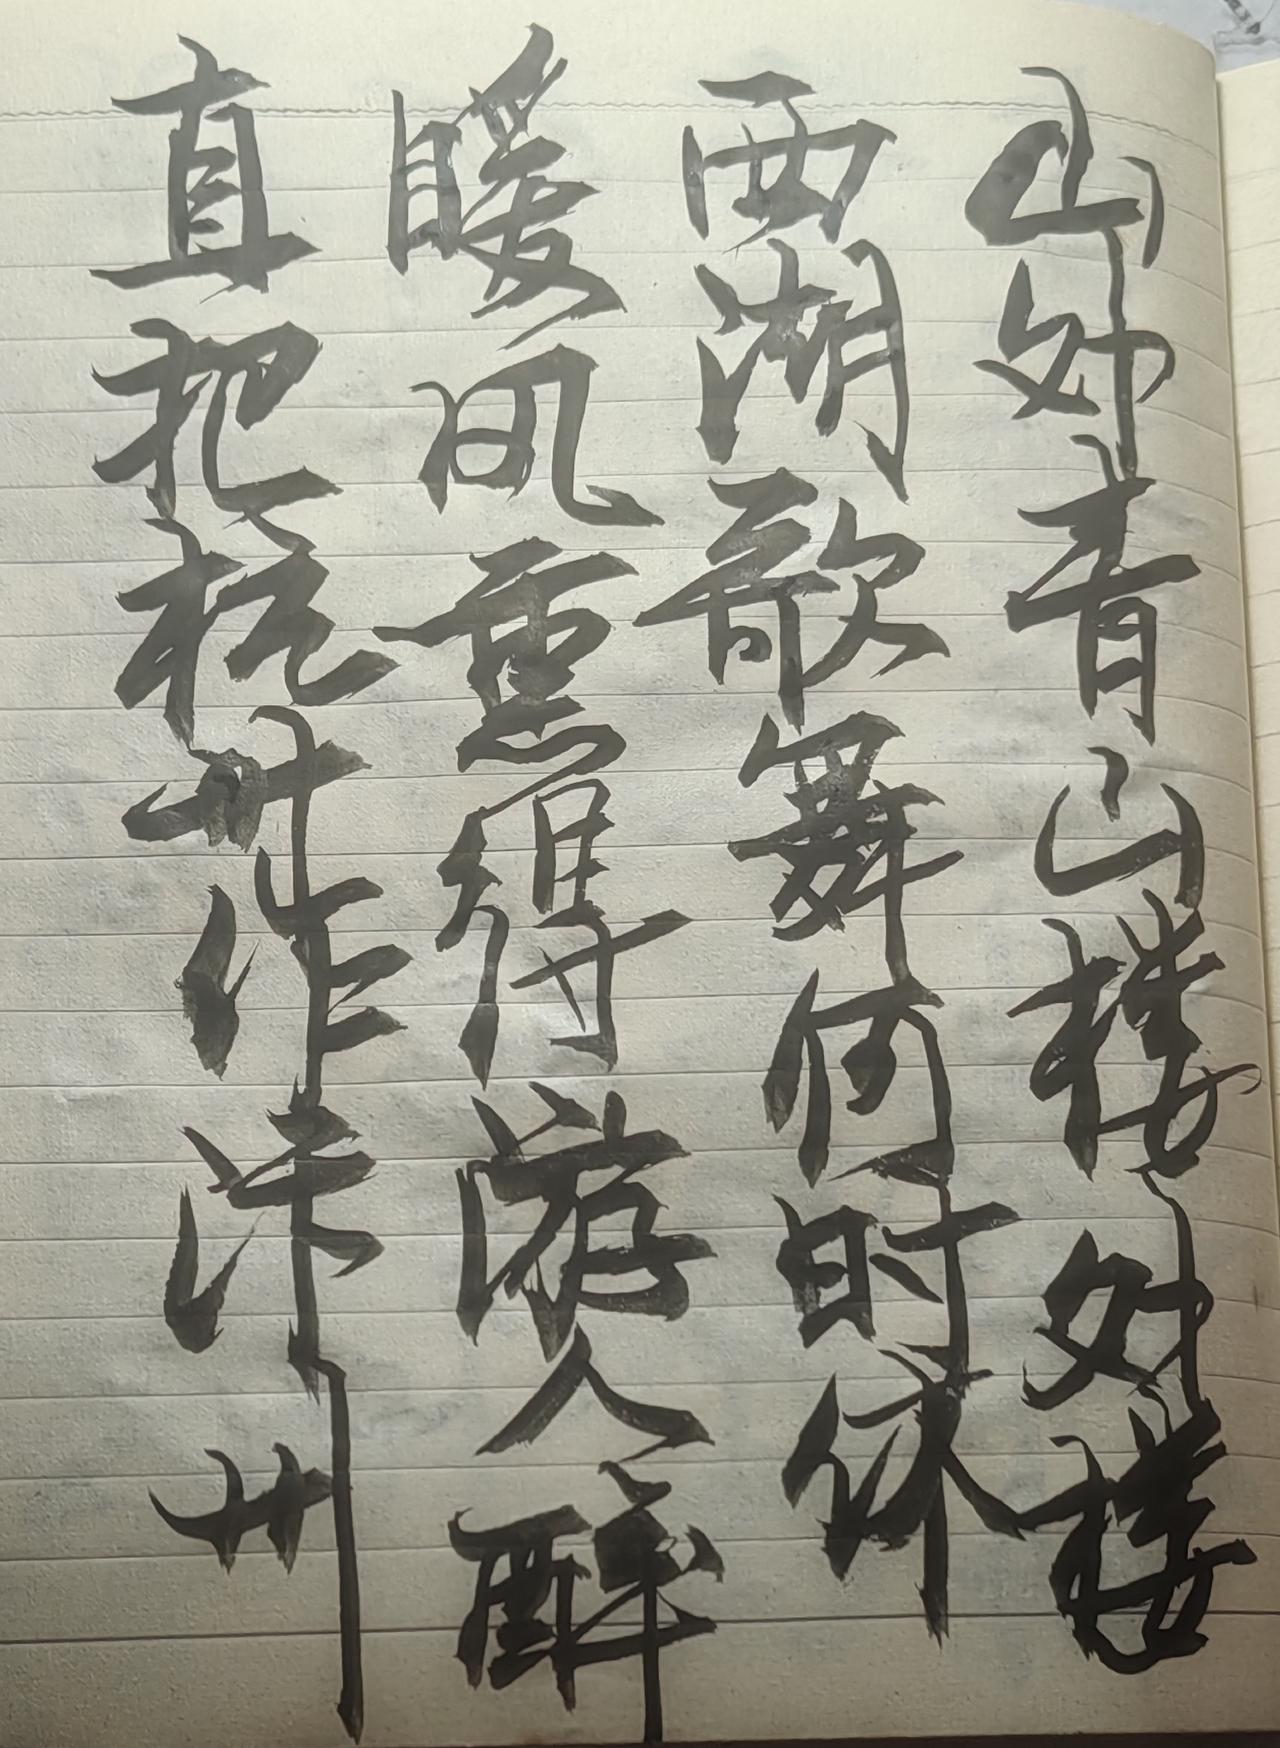 山外青山楼外楼
西湖歌舞何时休
暖风熏得游人醉
直把杭州作汴州